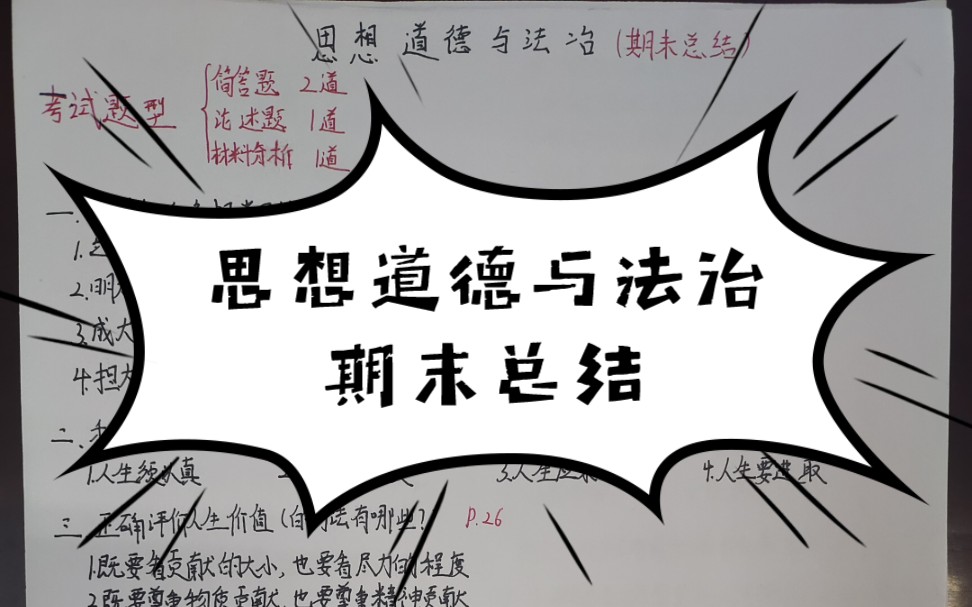 思想道德与法治(期末总结)
考试题型
简答题 2道
论述题 1道
材料分析 1道
思想道德与法治
期末总结
一.
1.
2.明
3.成大
4.担大
二.
1.人生须认真
3.人生应
4.人生要进取
三.正确评价人生价值(的方法有哪些? P.26
1.既要看贡献的大小,也要看尽力的程度
2.既要尊重物质贡献,也要尊重精神贡献